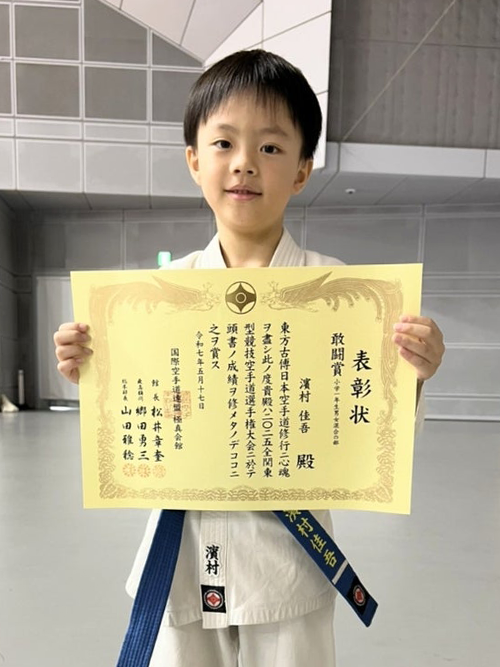 表彰状
敢闘賞 小学一年生男女混合の部
濱村 佳吾 殿
東方古傳日本空手道修行ニ心魂
ヲ盡シ此ノ度貴殿ハ二〇二五全関東
型競技空手道選手権大会ニ於テ
頭書ノ成績ヲ修メタノデココニ
之ヲ賞ス
令和七年五月十七日
国際空手道連盟 極真会館
館長 松井章奎
郷田勇三
山田雅稔
濱村佳吾
濱村